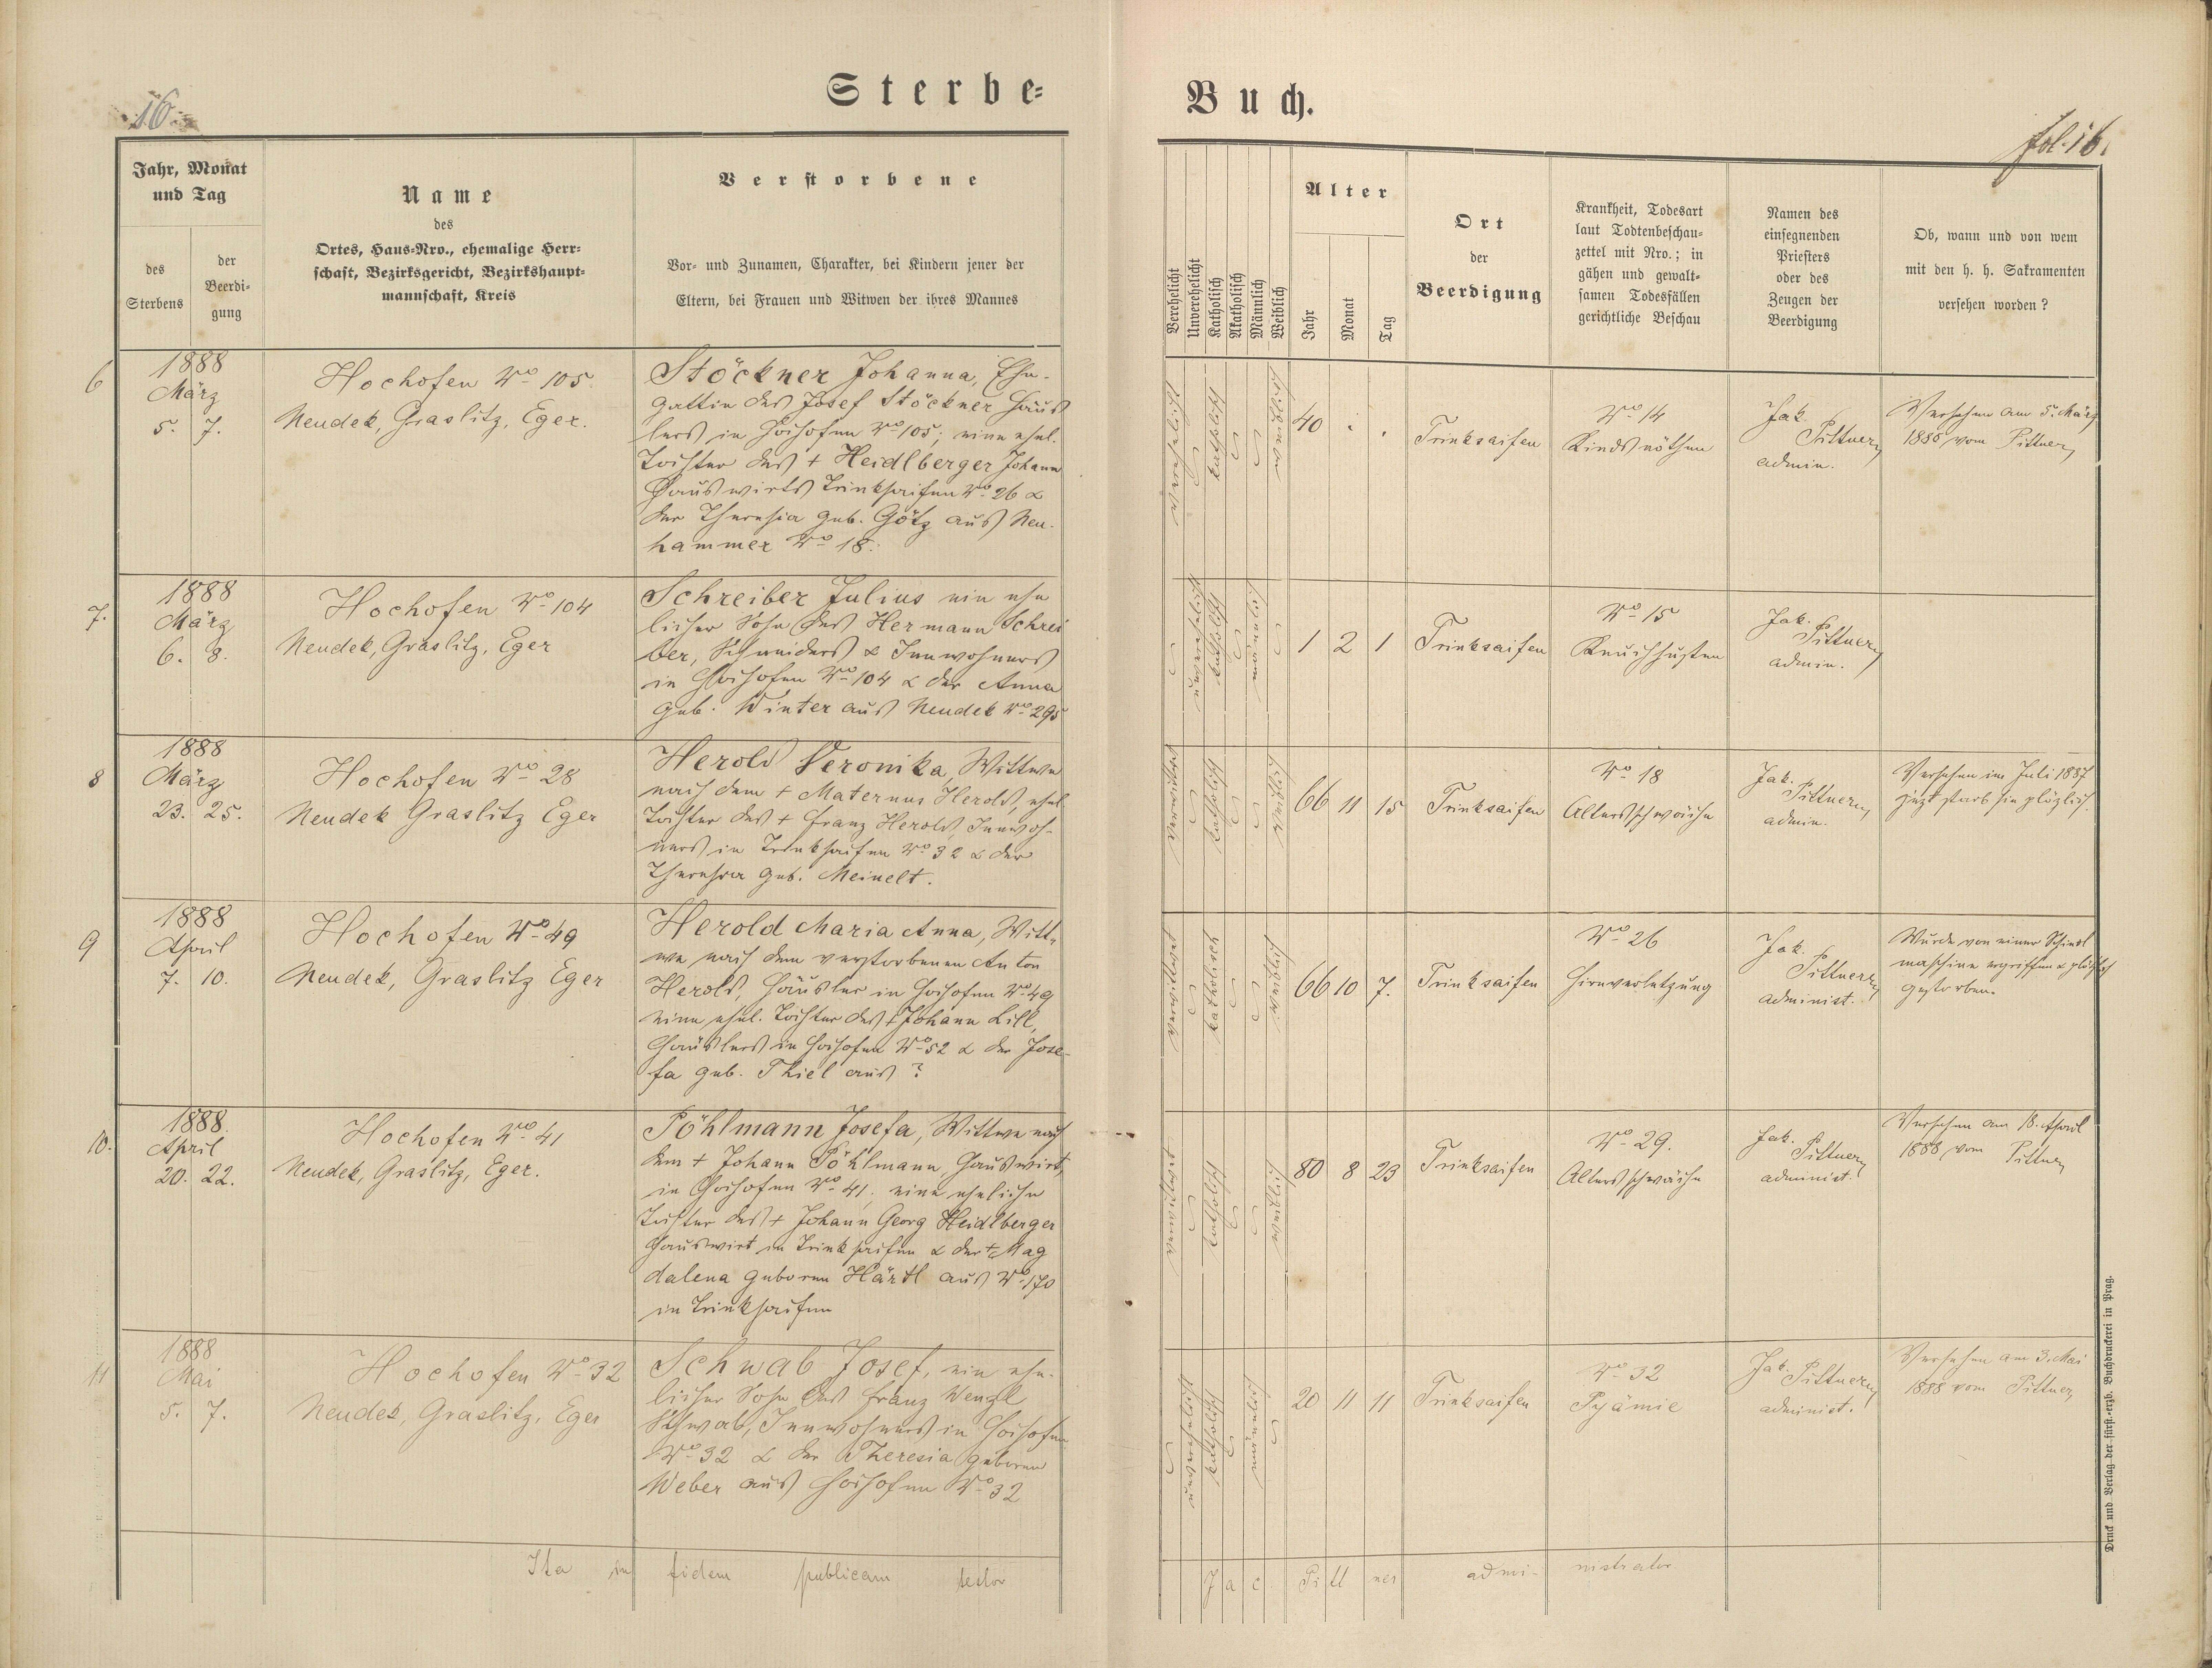 16.
Sterbe-
Buch.
fol. 16.
Jahr, Monat
und Tag
des
Sterbens
der
Beerdi-
gung
Name
des
Ortes, Haus-Nro., ehemalige Herr-
schaft, Bezirksgericht, Bezirkshaupt-
mannschaft, Kreis
Verstorbene
Vor- und Zunamen, Charakter, bei Kindern jener der
Eltern, bei Frauen und Witwen der ihres Mannes
Verehelicht
Unverehelicht
Katholisch
Akatholisch
Männlich
Weiblich
Alter
Jahr
Monat
Tag
Ort
der
Beerdigung
Krankheit, Todesart
laut Todtenbeschau-
zettel mit Nro.; in
gähen und gewalt-
samen Todesfällen
gerichtliche Beschau
Namen des
einsegnenden
Priesters
oder des
Zeugen der
Beerdigung
Ob, wann und von wem
mit den h. h. Sakramenten
versehen worden?
6
1888
März
5. 7.
Hochofen No 105.
Neudek, Graslitz, Eger.
Stöckner Johanna, Ehe-
gattin des Josef Stöckner Häus
lers in Hochofen No 105; eine ehel.
Tochter des + Heidlberger Johann
Hauswirts Trinksaifen No 26 &
der Theresia geb. Götz aus Neu-
hammer No 18.
verehelicht
katholisch
weiblich
40 . .
Trinksaifen
No 14
Kindsnöthen
Jak.
Pittner,
admin.
Versehen am 5. März
1888 vom Pittner,
7.
1888
März
6. 8.
Hochofen No 104
Neudek, Graslitz, Eger
Schreiber Julius ein ehe
licher Sohn des Hermann Schrei
ber, Schneiders & Innwohners
in Hochofen No 104 & der Anna
geb. Winter aus Neudek No 295
unverehelicht
katholisch
männlich
1 2 1
Trinksaifen
No 15
Keuchhusten
Jak.
Pittner,
admin.
8
1888
März
23. 25.
Hochofen No 28
Neudek Graslitz Eger
Herold Veronika, Wittwe
nach dem + Maternus Herold, ehel
Tochter des + Franz Herold, Innwoh-
ners in Trinksaifen No 32 & der
Theresia geb. Meinelt.
verwitwet
katholisch
weiblich
66 11 15
Trinksaifen
No 18
Altersschwäche
Jak.
Pittner,
admin.
Versehen im Juli 1887
jezt starb sie plözlich.
9
1888
April
7. 10.
Hochofen No 49
Neudek, Graslitz Eger
Herold Maria Anna, Witt-
we nach dem verstorbenen Anton
Herold, Häusler in Hochofen No 49
eine ehel. Tochter des + Johann Lill,
Häuslers in Hochofen No 52 & der Jose-
fa geb. Thiel aus ?
verwittwet
katholisch
weiblich
66 10 7.
Trinksaifen
No 26
Hirnverletzung
Jak.
Pittner,
administ.
Wurde von einer Schindl
maschine ergriffen & plötzlich
gestorben.
10.
1888.
April
20. 22.
Hochofen No 41
Neudek, Graslitz, Eger.
Pöhlmann Josefa, Wittwe nach
dem + Johann Pöhlmann, Hauswirt,
in Hochofen No 41; eine eheliche
Tochter des + Johann Georg Heidlberger
Hauswirt in Trinksaifen & der + Mag
dalena geboren Härtl aus No 170
in Trinksaifen
verwitwet
katholisch
weiblich
80 8 23
Trinksaifen
No 29.
Altersschwäche
Jak.
Pittner,
administ.
Versehen am 18. April
1888 vom Pittner
11
1888
Mai
5. 7.
Hochofen No 32
Neudek, Graslitz, Eger
Schwab Josef, ein ehe-
licher Sohn des Franz Wenzl
Schwab, Innwohners in Hochofen
No 32 & der Theresia geboren
Weber aus Hochofen No 32
unverehelicht
katholisch
männlich
20 11 11
Trinksaifen
No 32
Pyämie
Jak. Pittner,
administ.
Versehen am 3. Mai
1888 vom Pittner,
Ita in fidem publicam testor
Jac. Pittner administrator
Druck und Verlag der fürst.-erzb. Buchdruckerei in Prag.